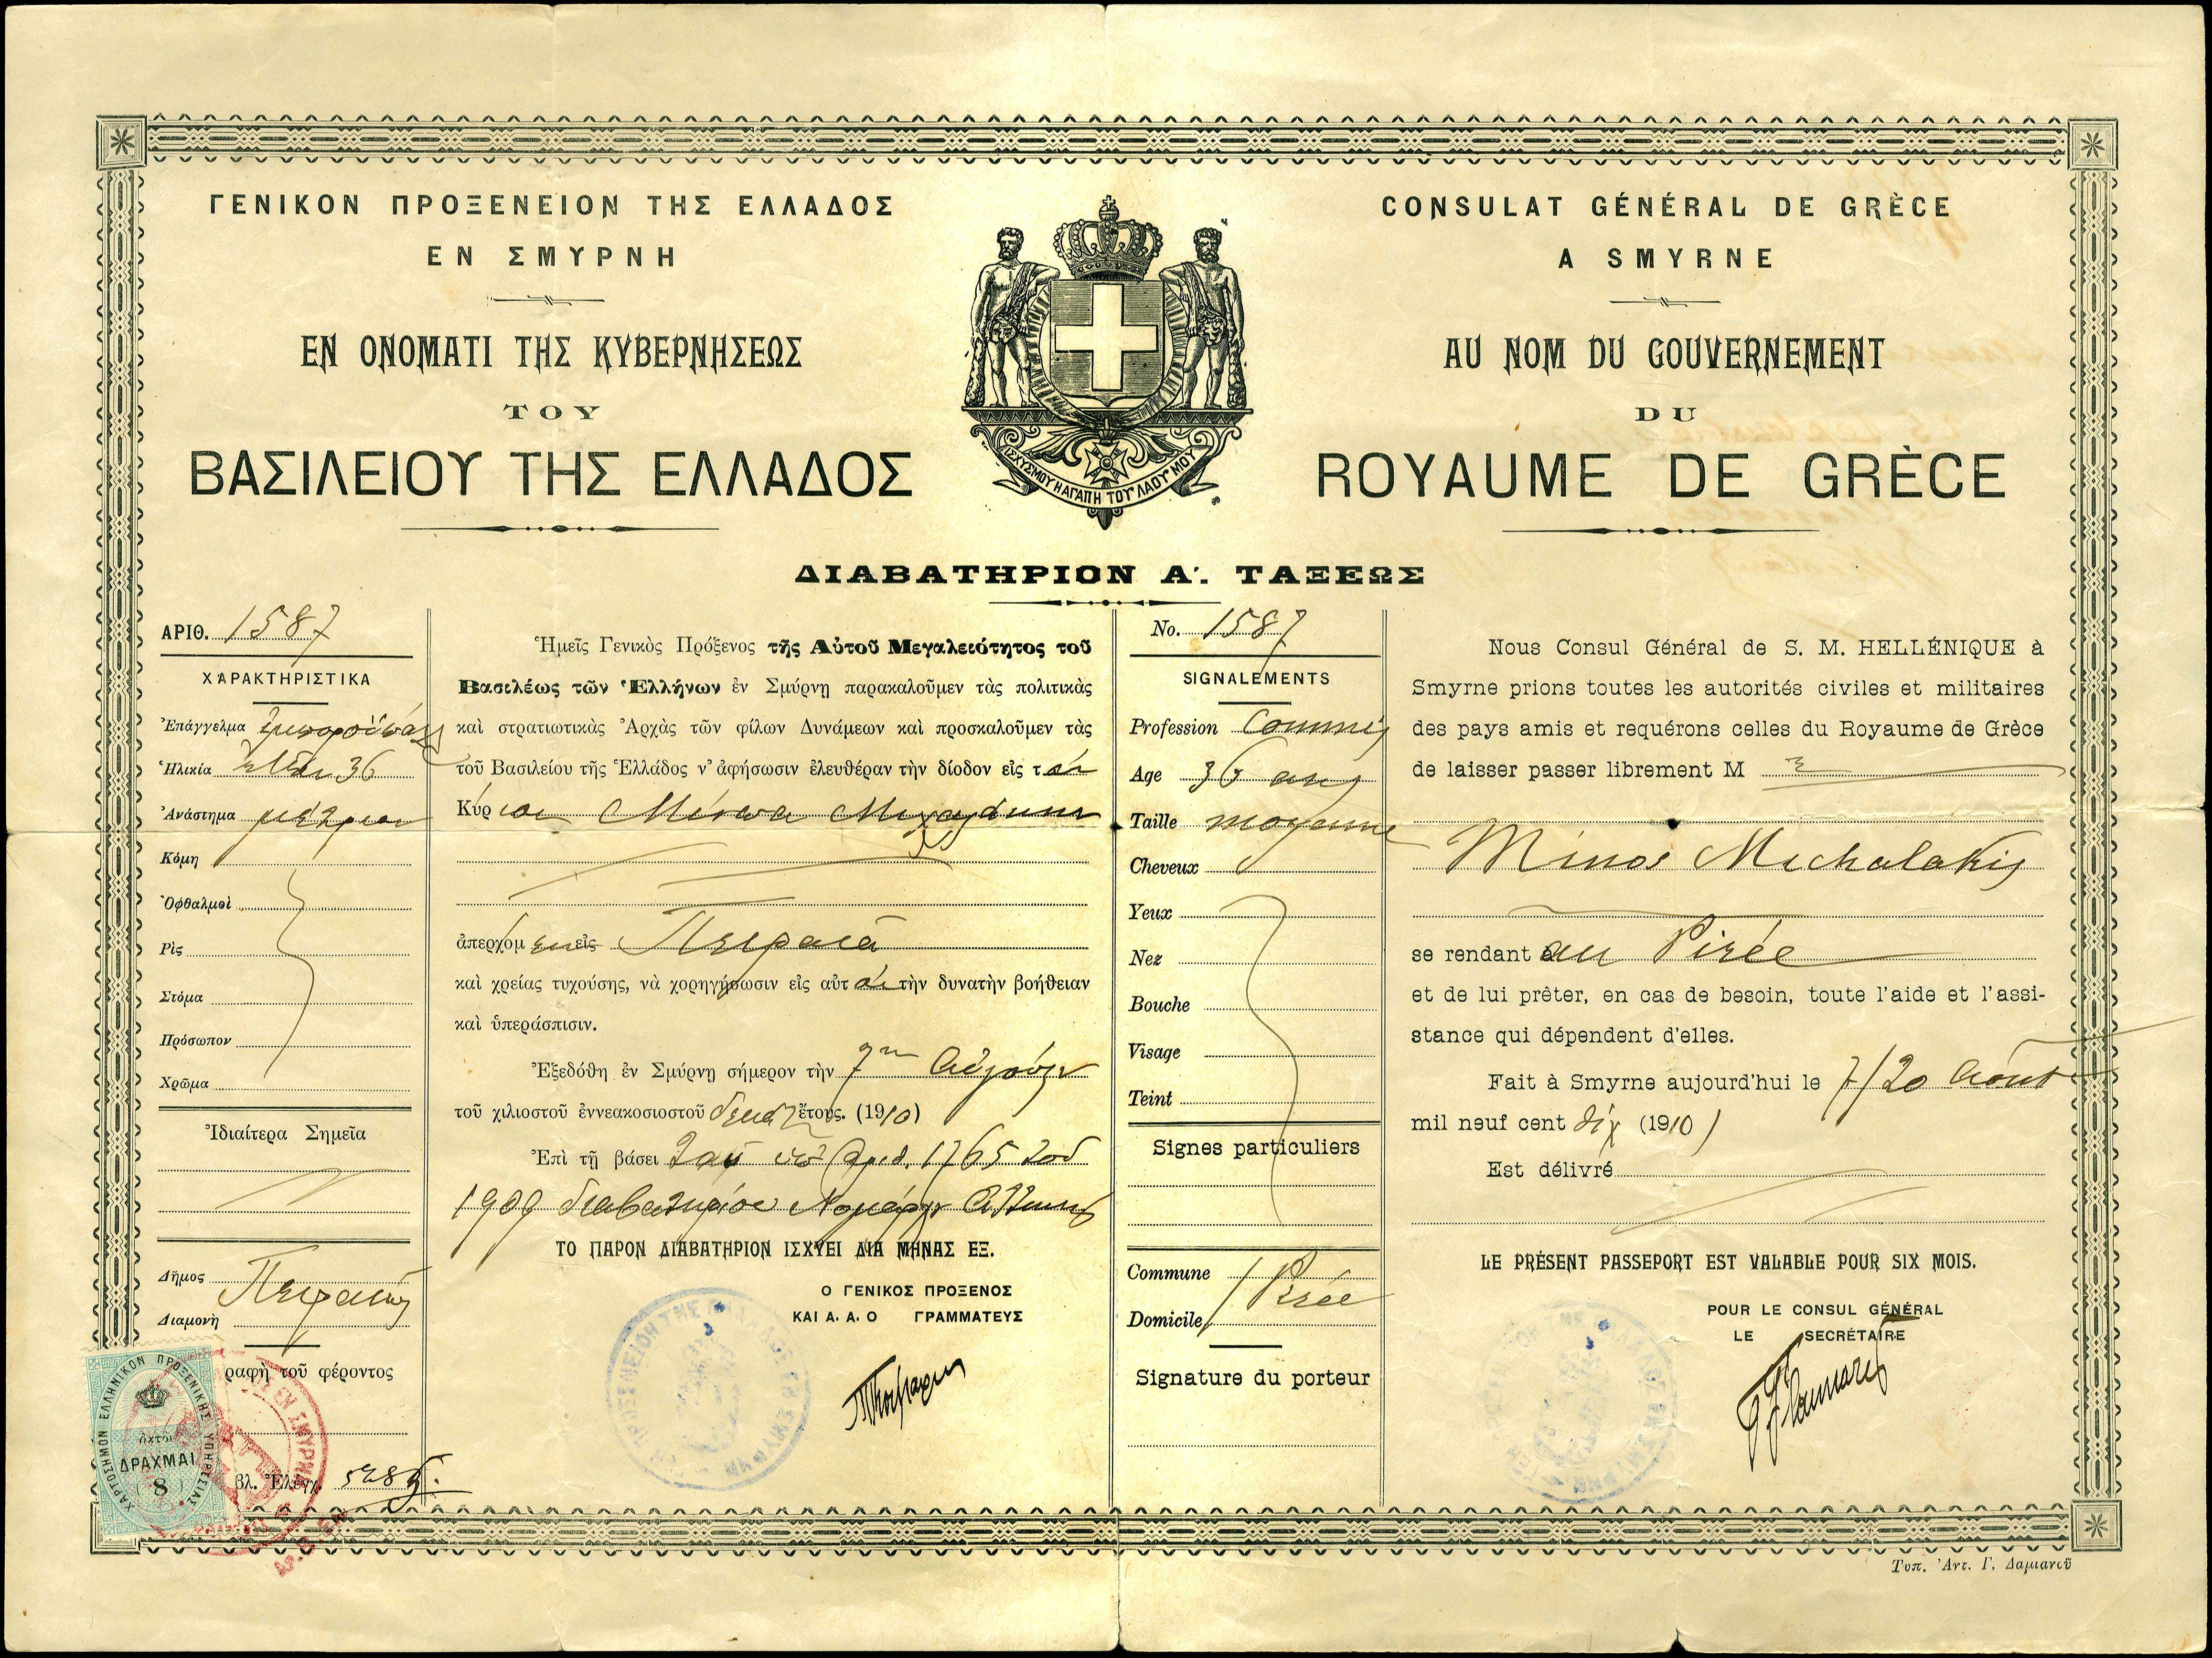 ΓΕΝΙΚΟΝ ΠΡΟΞΕΝΕΙΟΝ ΤΗΣ ΕΛΛΑΔΟΣ
ΕΝ ΣΜΥΡΝΗ
ΕΝ ΟΝΟΜΑΤΙ ΤΗΣ ΚΥΒΕΡΝΗΣΕΩΣ
ΤΟΥ
ΒΑΣΙΛΕΙΟΥ ΤΗΣ ΕΛΛΑΔΟΣ
ΙΣΧΥΣ ΜΟΥ Η ΑΓΑΠΗ ΤΟΥ ΛΑΟΥ ΜΟΥ
CONSULAT GÉNÉRAL DE GRÈCE
A SMYRNE
AU NOM DU GOUVERNEMENT
DU
ROYAUME DE GRÈCE
ΔΙΑΒΑΤΗΡΙΟΝ Α΄. ΤΑΞΕΩΣ
ΑΡΙΘ. 1587
ΧΑΡΑΚΤΗΡΙΣΤΙΚΑ
Ἐπάγγελμα
Ἡλικία ἐτῶν 36
Ἀνάστημα μέτριον
Κόμη
Ὀφθαλμοὶ
Ρὶς
Στόμα
Πρόσωπον
Χρῶμα
Ἰδιαίτερα Σημεῖα
Δῆμος Πειραιῶς
Διαμονὴ
ραφὴ τοῦ φέροντος
βλ. Ἐλέγχ.
ΧΑΡΤΟΣΗΜΟΝ ΕΛΛΗΝΙΚΟΝ ΠΡΟΞΕΝΙΚΗΣ ΥΠΗΡΕΣΙΑΣ
ὀκτὼ
ΔΡΑΧΜΑΙ
8
ΕΝ ΣΜΥΡΝΗ
Ἡμεῖς Γενικὸς Πρόξενος τῆς Αὐτοῦ Μεγαλειότητος τοῦ
Βασιλέως τῶν Ἑλλήνων ἐν Σμύρνῃ παρακαλοῦμεν τὰς πολιτικὰς
καὶ στρατιωτικὰς Ἀρχὰς τῶν φίλων Δυνάμεων καὶ προσκαλοῦμεν τὰς
τοῦ Βασιλείου τῆς Ἑλλάδος ν' ἀφήσωσιν ἐλευθέραν τὴν δίοδον εἰς τὸν
Κύριον Μίνωα Μιχαλάκην
ἀπερχόμενον εἰς Πειραιᾶ
καὶ χρείας τυχούσης, νὰ χορηγήσωσιν εἰς αὐτὸν τὴν δυνατὴν βοήθειαν
καὶ ὑπεράσπισιν.
Ἐξεδόθη ἐν Σμύρνῃ σήμερον τὴν 7ην Αὐγούστου
τοῦ χιλιοστοῦ ἐννεακοσιοστοῦ δεκάτου ἔτους. (1910)
Ἐπὶ τῇ βάσει τοῦ ὑπ' ἀριθ. 1765 τοῦ
1909 διαβατηρίου Νομάρχου Ἀττικῆς
ΤΟ ΠΑΡΟΝ ΔΙΑΒΑΤΗΡΙΟΝ ΙΣΧΥΕΙ ΔΙΑ ΜΗΝΑΣ ΕΞ.
Ο ΓΕΝΙΚΟΣ ΠΡΟΞΕΝΟΣ
ΚΑΙ Α. Α. Ο ΓΡΑΜΜΑΤΕΥΣ
No. 1587
SIGNALEMENTS
Profession Commis
Age 36 ans
Taille moyenne
Cheveux
Yeux
Nez
Bouche
Visage
Teint
Signes particuliers
Commune Pirée
Domicile
Signature du porteur
Nous Consul Général de S. M. HELLÉNIQUE à
Smyrne prions toutes les autorités civiles et militaires
des pays amis et requérons celles du Royaume de Grèce
de laisser passer librement M r
Minos Michalakis
se rendant au Pirée
et de lui prêter, en cas de besoin, toute l'aide et l'assi-
stance qui dépendent d'elles.
Fait à Smyrne aujourd'hui le 7/20 Août
mil neuf cent dix (1910)
Est délivré
LE PRÉSENT PASSEPORT EST VALABLE POUR SIX MOIS.
POUR LE CONSUL GÉNÉRAL
LE SECRÉTAIRE
Τυπ. Ἀντ. Γ. Δαμιανοῦ